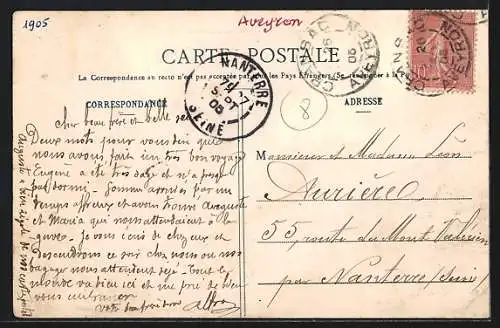 1905
Aveyron
CARTE POSTALE
La Correspondance au recto n'est pas acceptée par tous les Pays Étrangers (Se renseigner à la Poste)
CORRESPONDANCE
ADRESSE
NANTERRE
SEINE
8
CRANSAC
AVEYRON
10
Cher beau frère et belle sœur
Deux mots pour vous dire que
nous avons fait un très bon voyage
Eugène a été très et n'a pas
pas dormi. Sommes arrivés par un
temps affreux et avons trouvé Auguste
et Maria qui nous attendaient à la
gare. Je vous écris de chez eux et
descendrons ce soir chez nous ou nos
bagages nous attendent déjà. Tout le
monde va bien ici et me prie de bien
vous embrasser
Votre
Monsieur et Madame Léon
Aurières
55, route du Mont Valérien
par Nanterre (Seine)